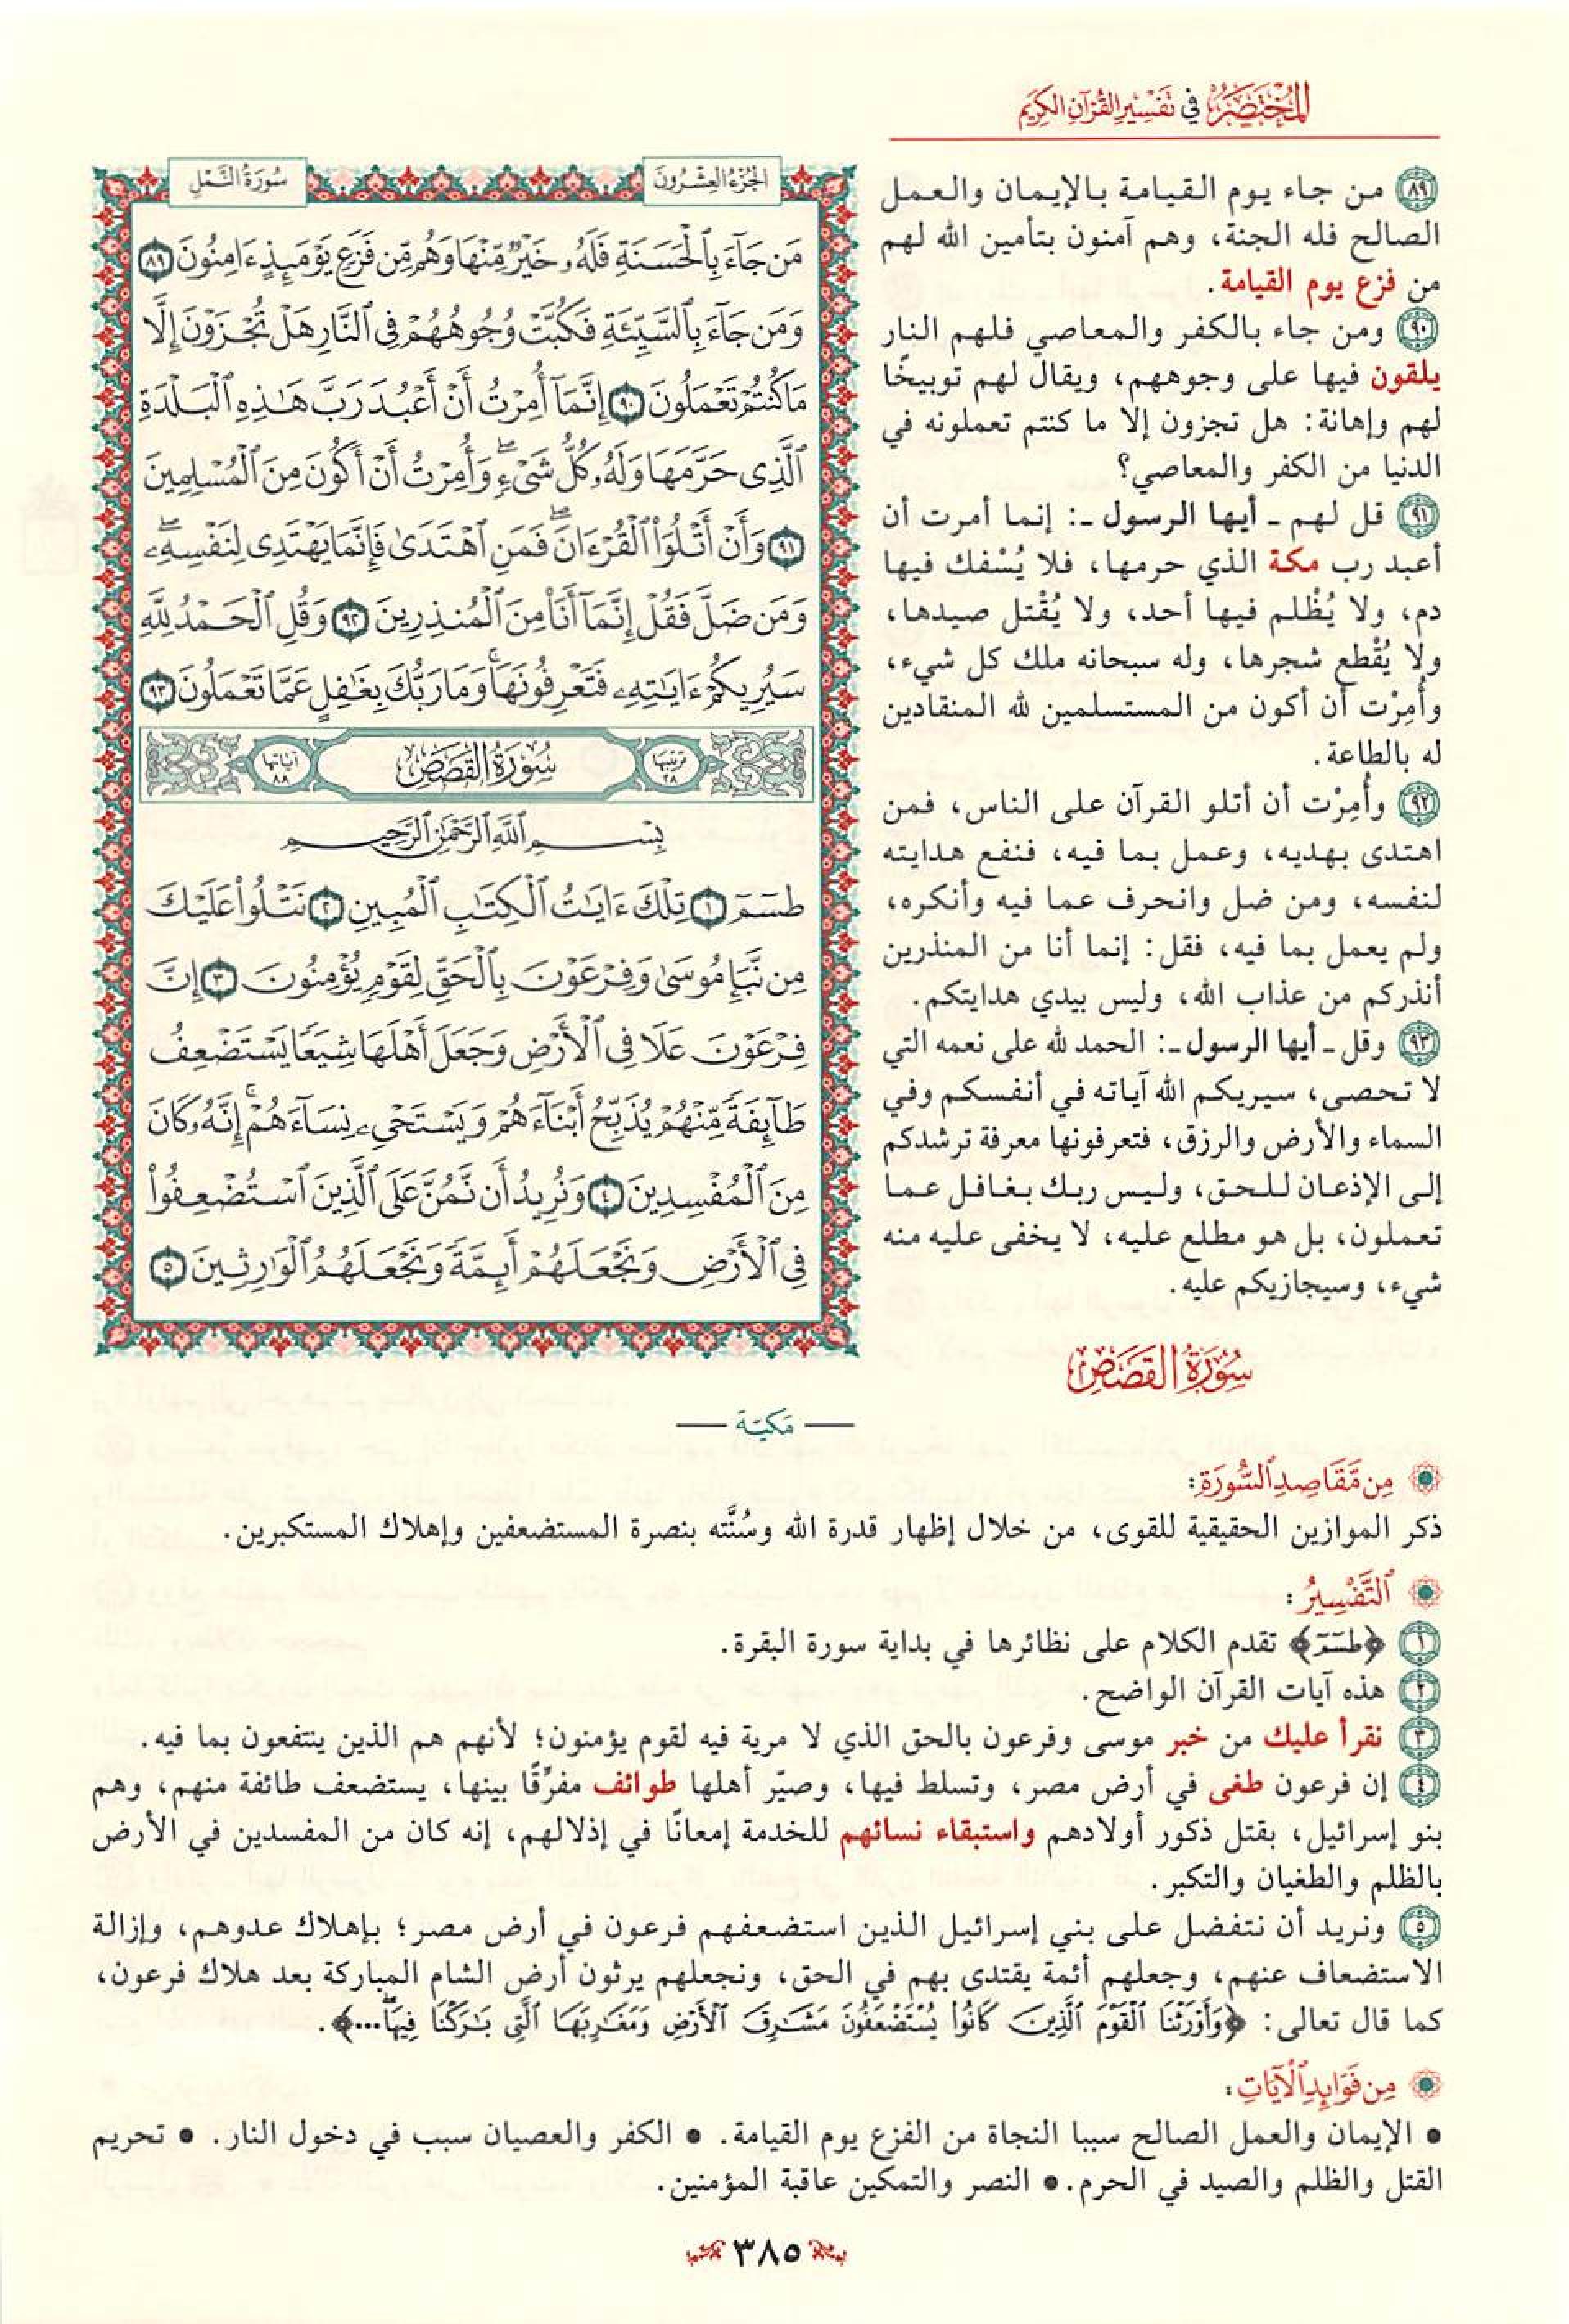 المختصر في تفسير القرآن الكريم
الجزء العشرون
سورة النمل
مَن جَآءَ بِٱلْحَسَنَةِ فَلَهُۥ خَيْرٌ مِّنْهَا وَهُم مِّن فَزَعٍ يَوْمَئِذٍ ءَامِنُونَ ٨٩
وَمَن جَآءَ بِٱلسَّيِّئَةِ فَكُبَّتْ وُجُوهُهُمْ فِى ٱلنَّارِ هَلْ تُجْزَوْنَ إِلَّا
مَا كُنتُمْ تَعْمَلُونَ ٩٠ إِنَّمَآ أُمِرْتُ أَنْ أَعْبُدَ رَبَّ هَٰذِهِ ٱلْبَلْدَةِ
ٱلَّذِى حَرَّمَهَا وَلَهُۥ كُلُّ شَىْءٍۖ وَأُمِرْتُ أَنْ أَكُونَ مِنَ ٱلْمُسْلِمِينَ
٩١ وَأَنْ أَتْلُوَا۟ ٱلْقُرْءَانَۖ فَمَنِ ٱهْتَدَىٰ فَإِنَّمَا يَهْتَدِى لِنَفْسِهِۦۖ
وَمَن ضَلَّ فَقُلْ إِنَّمَآ أَنَا۠ مِنَ ٱلْمُنذِرِينَ ٩٢ وَقُلِ ٱلْحَمْدُ لِلَّهِ
سَيُرِيكُمْ ءَايَٰتِهِۦ فَتَعْرِفُونَهَاۚ وَمَا رَبُّكَ بِغَٰفِلٍ عَمَّا تَعْمَلُونَ ٩٣
ترتيبها ٢٨ سورة القصص آياتها ٨٨
بِسْمِ ٱللَّهِ ٱلرَّحْمَٰنِ ٱلرَّحِيمِ
طسٓمٓ ١ تِلْكَ ءَايَٰتُ ٱلْكِتَٰبِ ٱلْمُبِينِ ٢ نَتْلُوا۟ عَلَيْكَ
مِن نَّبَإِ مُوسَىٰ وَفِرْعَوْنَ بِٱلْحَقِّ لِقَوْمٍ يُؤْمِنُونَ ٣ إِنَّ
فِرْعَوْنَ عَلَا فِى ٱلْأَرْضِ وَجَعَلَ أَهْلَهَا شِيَعًا يَسْتَضْعِفُ
طَآئِفَةً مِّنْهُمْ يُذَبِّحُ أَبْنَآءَهُمْ وَيَسْتَحْىِۦ نِسَآءَهُمْۚ إِنَّهُۥ كَانَ
مِنَ ٱلْمُفْسِدِينَ ٤ وَنُرِيدُ أَن نَّمُنَّ عَلَى ٱلَّذِينَ ٱسْتُضْعِفُوا۟
فِى ٱلْأَرْضِ وَنَجْعَلَهُمْ أَئِمَّةً وَنَجْعَلَهُمُ ٱلْوَٰرِثِينَ ٥
٨٩ من جاء يوم القيامة بالإيمان والعمل
الصالح فله الجنة، وهم آمنون بتأمين الله لهم
من فزع يوم القيامة.
٩٠ ومن جاء بالكفر والمعاصي فلهم النار
يلقون فيها على وجوههم، ويقال لهم توبيخًا
لهم وإهانة: هل تجزون إلا ما كنتم تعملونه في
الدنيا من الكفر والمعاصي؟
٩١ قل لهم ـ أيها الرسول ـ: إنما أمرت أن
أعبد رب مكة الذي حرمها، فلا يُسْفك فيها
دم، ولا يُظْلم فيها أحد، ولا يُقْتل صيدها،
ولا يُقْطع شجرها، وله سبحانه ملك كل شيء،
وأُمِرْت أن أكون من المستسلمين لله المنقادين
له بالطاعة.
٩٢ وأُمِرْت أن أتلو القرآن على الناس، فمن
اهتدى بهديه، وعمل بما فيه، فنفع هدايته
لنفسه، ومن ضل وانحرف عما فيه وأنكره،
ولم يعمل بما فيه، فقل: إنما أنا من المنذرين
أنذركم من عذاب الله، وليس بيدي هدايتكم.
٩٣ وقل ـ أيها الرسول ـ: الحمد لله على نعمه التي
لا تحصى، سيريكم الله آياته في أنفسكم وفي
السماء والأرض والرزق، فتعرفونها معرفة ترشدكم
إلى الإذعان للحق، وليس ربك بغافل عما
تعملون، بل هو مطلع عليه، لا يخفى عليه منه
شيء، وسيجازيكم عليه.
سورة القصص
— مكية —
من مقاصد السورة:
ذكر الموازين الحقيقية للقوى، من خلال إظهار قدرة الله وسُنَّته بنصرة المستضعفين وإهلاك المستكبرين.
التفسير:
١ ﴿طسٓمٓ﴾ تقدم الكلام على نظائرها في بداية سورة البقرة.
٢ هذه آيات القرآن الواضح.
٣ نقرأ عليك من خبر موسى وفرعون بالحق الذي لا مرية فيه لقوم يؤمنون؛ لأنهم هم الذين ينتفعون بما فيه.
٤ إن فرعون طغى في أرض مصر، وتسلط فيها، وصيّر أهلها طوائف مفرِّقًا بينها، يستضعف طائفة منهم، وهم
بنو إسرائيل، بقتل ذكور أولادهم واستبقاء نسائهم للخدمة إمعانًا في إذلالهم، إنه كان من المفسدين في الأرض
بالظلم والطغيان والتكبر.
٥ ونريد أن نتفضل على بني إسرائيل الذين استضعفهم فرعون في أرض مصر؛ بإهلاك عدوهم، وإزالة
الاستضعاف عنهم، وجعلهم أئمة يقتدى بهم في الحق، ونجعلهم يرثون أرض الشام المباركة بعد هلاك فرعون،
كما قال تعالى: ﴿وَأَوْرَثْنَا ٱلْقَوْمَ ٱلَّذِينَ كَانُوا۟ يُسْتَضْعَفُونَ مَشَٰرِقَ ٱلْأَرْضِ وَمَغَٰرِبَهَا ٱلَّتِى بَٰرَكْنَا فِيهَاۖ...﴾.
من فوائد الآيات:
• الإيمان والعمل الصالح سببا النجاة من الفزع يوم القيامة. • الكفر والعصيان سبب في دخول النار. • تحريم
القتل والظلم والصيد في الحرم. • النصر والتمكين عاقبة المؤمنين.
٣٨٥